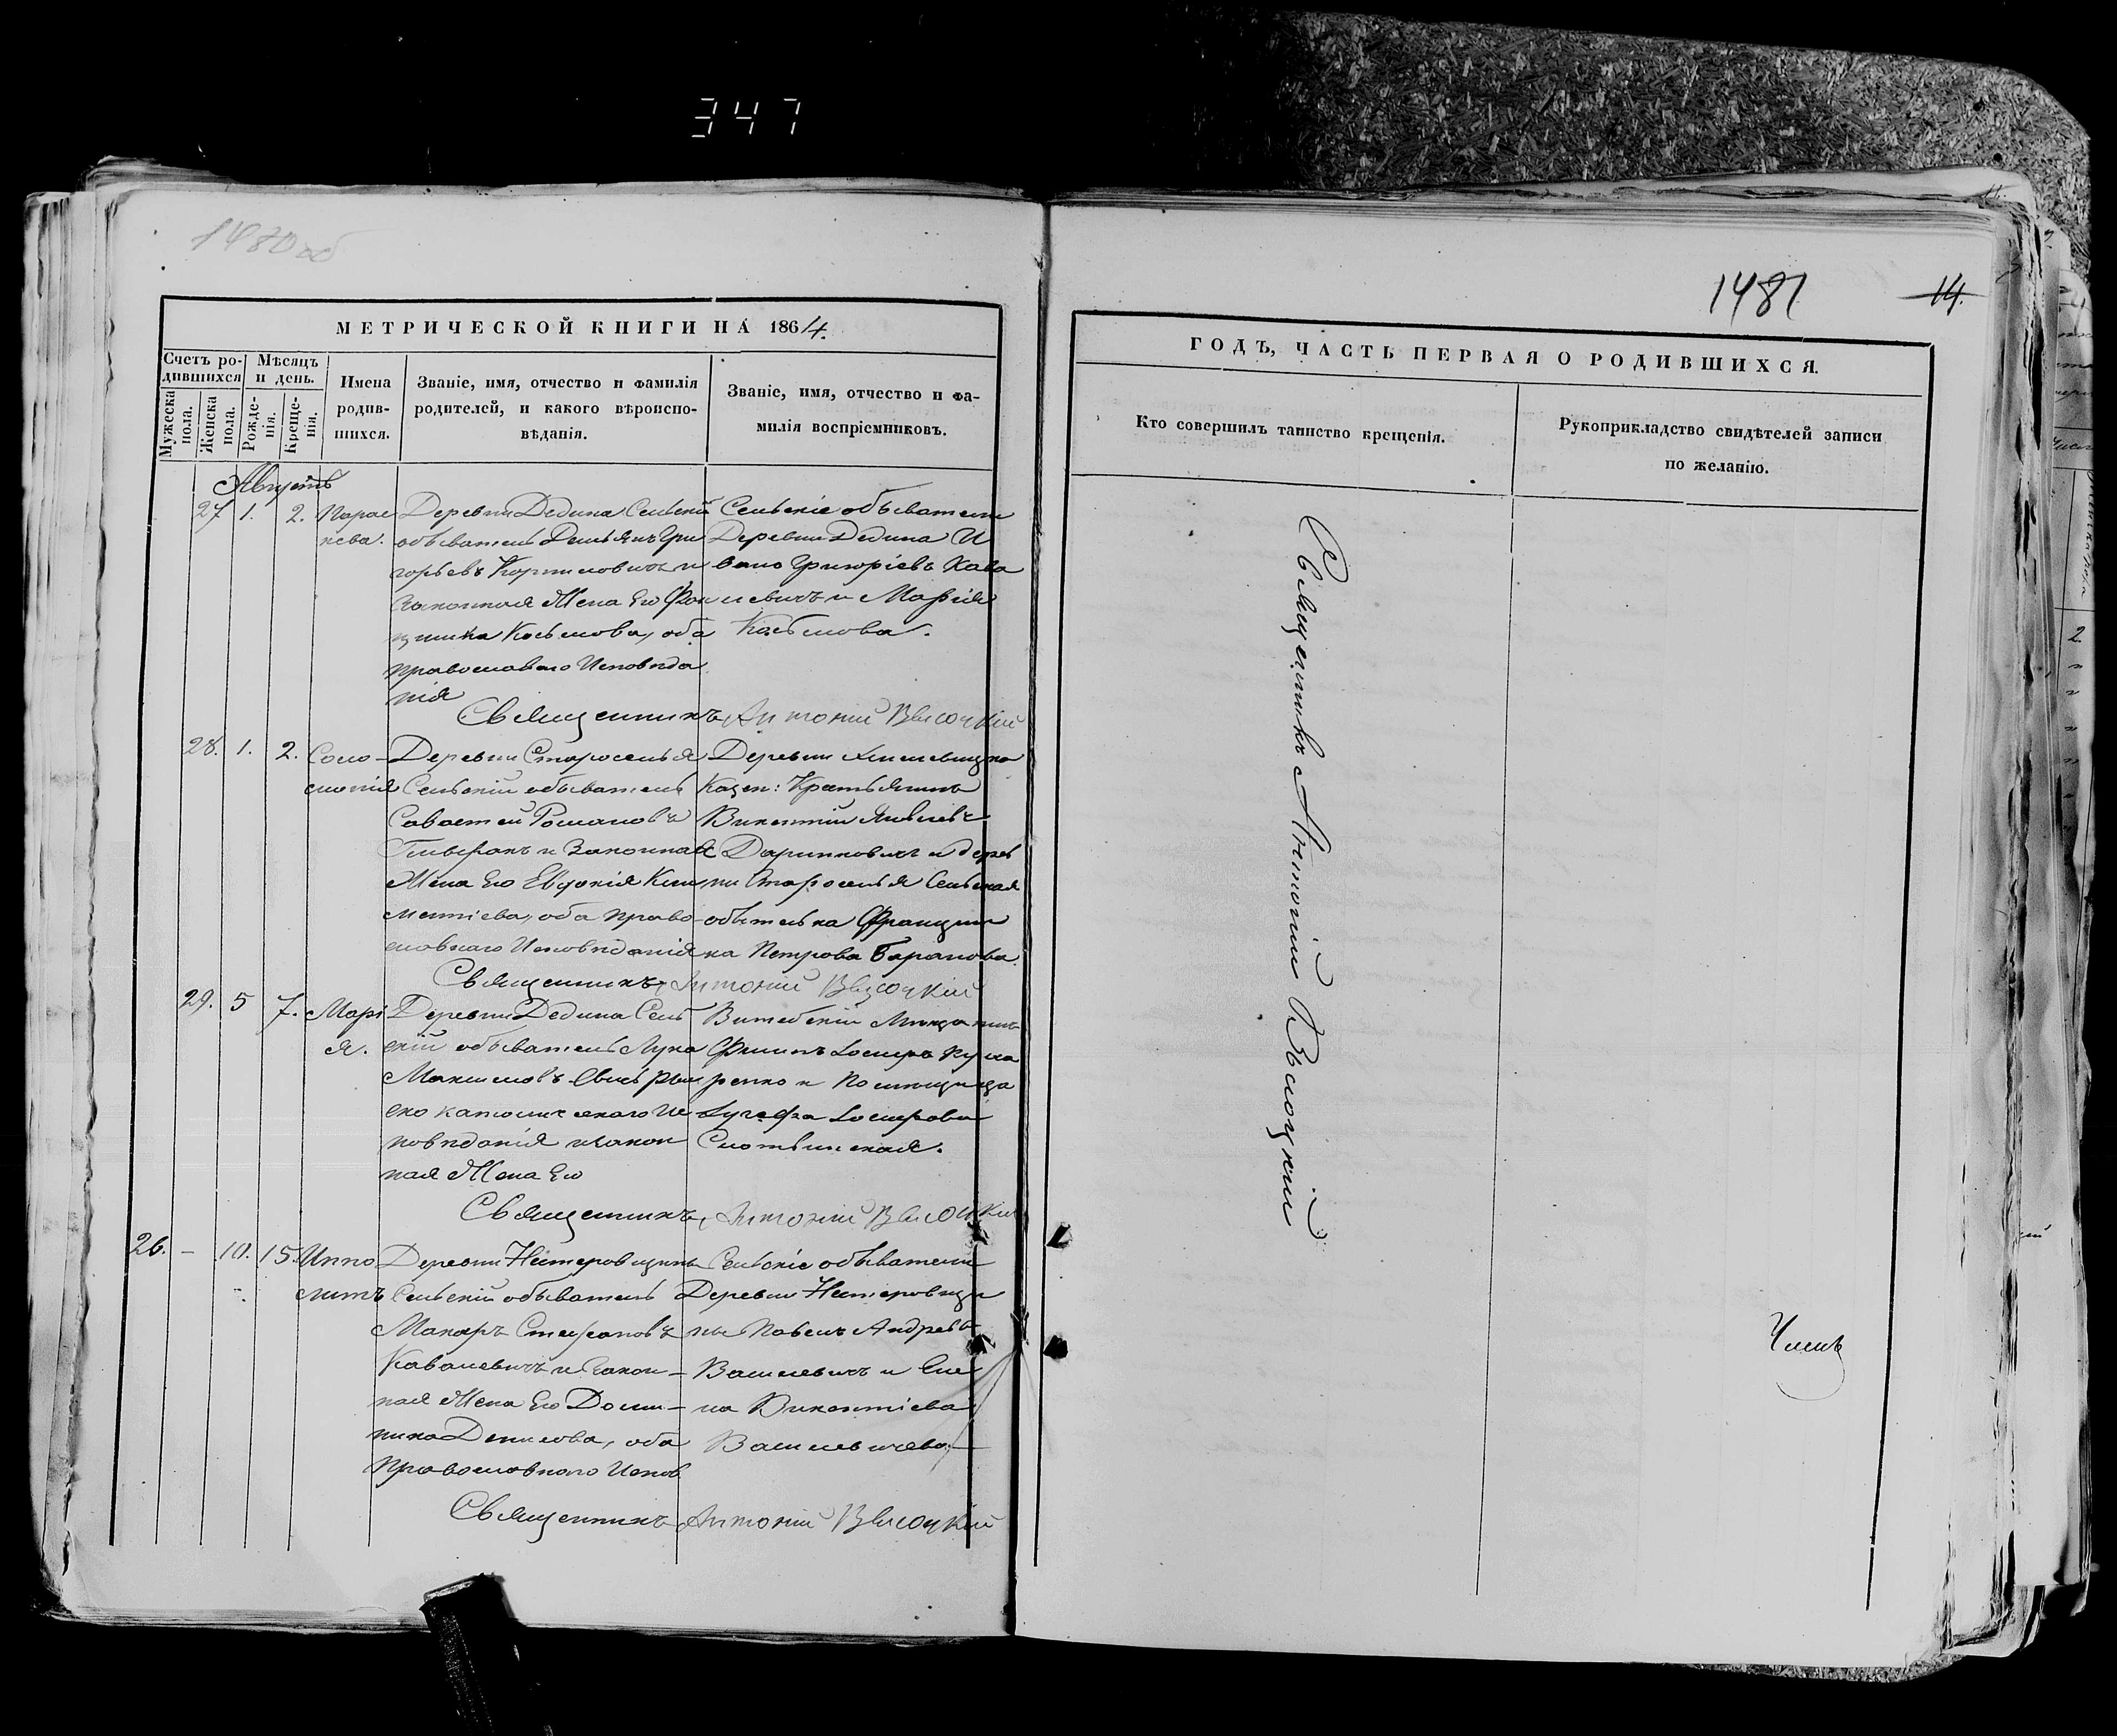 347
1480 об
МЕТРИЧЕСКОЙ КНИГИ НА 1864.
Счетъ ро-
дившихся
Мѣсяцъ
и день.
Мужеска
пола.
Женска
пола.
Рожде-
нія.
Креще-
нія.
Имена
родив-
шихся.
Званіе, имя, отчество и фамилія
родителей, и какого вѣроиспо-
вѣданія.
Званіе, имя, отчество и фа-
милія воспріемниковъ.
Августъ
27 1. 2. Парас
кева.
Деревни Дедина Сельскій
обыватель Демьянъ Гри
горьевъ и
Законная Жена Его Фран
цишка Косьмова, оба
Православнаго Исповѣда
нія
Сельскіе обыватели
Деревни Дедина И
ванъ Григоріевъ Кова
левичъ и Марія
Косьмова.
Священникъ Антоній Высоцкій
28. 1. 2. Соло-
монія
Деревни Староселья
Сельскій обыватель
Савастей Романовъ
и Законная
Жена Его Евдокія Кли
ментіева, оба Право-
славнаго Исповѣданія
Деревни
Казен: Крестьянинъ
Викентій Яковлевъ
и дерев
ни Староселья Сельская
Франциш
ка Петрова Баранова.
Священникъ Антоній Высоцкій
29. 5 7. Марі
я.
Деревни Дедина Сель
скій обыватель Лука
Максимовъ Рим
ско католическаго Ис
повѣданія и закон
ная Жена Его
Витебскій Мѣщанинъ
и Помѣщица
Священникъ Антоній Высоцкій
26. – 10. 15. Иппо
литъ
Деревни Нестеровщины
Сельскій обыватель
Макаръ Стефановъ
Ковалевичъ и Закон-
ная Жена Его Доми-
ника Денисова, оба
Православнаго Испов.
Сельскіе обыватели
Деревни Нестеровщи
ны Павелъ Андреевъ
Василевичъ и Еле
на Викентіева
Василевичева.
Священникъ Антоній Высоцкій
1481
14.
ГОДЪ, ЧАСТЬ ПЕРВАЯ О РОДИВШИХСЯ.
Кто совершилъ таинство крещенія.
Рукоприкладство свидѣтелей записи
по желанію.
Священникъ Антоній Высоцкій
Членъ